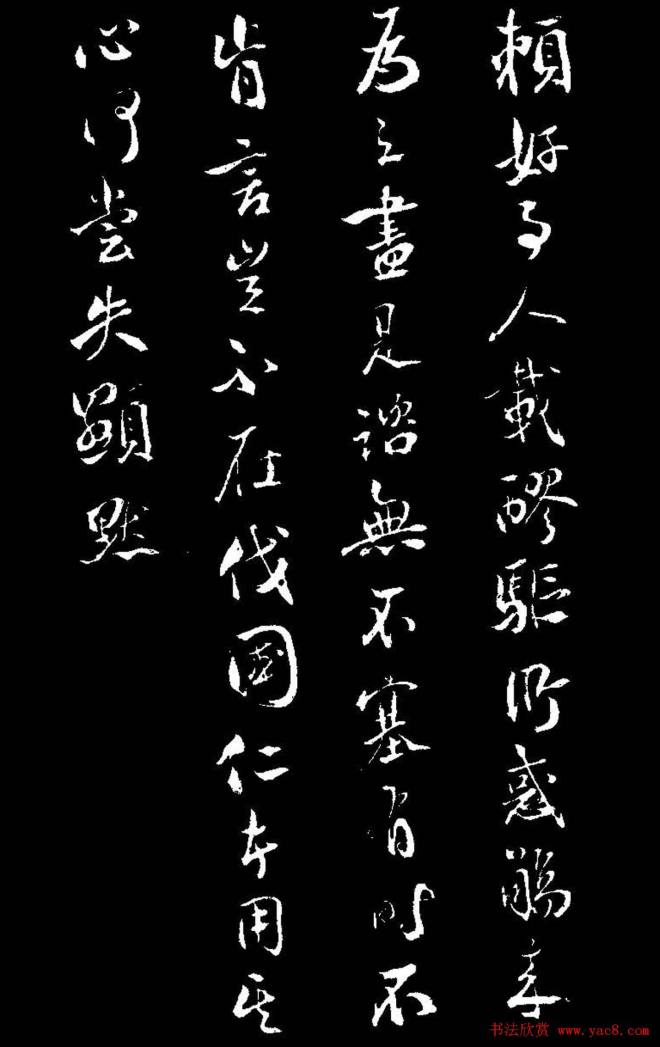 賴好事人載醪驅所惑觴來
為之盡是諮無不塞有時不
肯言豈不在伐國仁者用其
心何嘗失顯默
书法欣赏 www.yac8.com